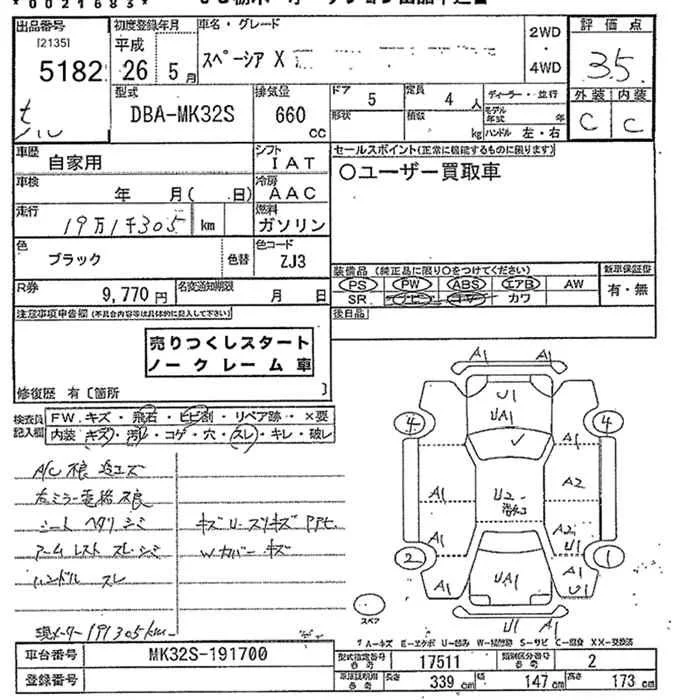 *0021683*
出品番号
[2135]
5182
初度登録年月
平成
26 5月
車名・グレード
スペーシア X
2WD
・
4WD
評価点
3.5
型式
DBA-MK32S
排気量
660 cc
ドア 5
形状
定員 4人
積数 kg
ディーラー・並行
モデル年式 年
ハンドル 左・右
外装 内装
C C
車歴
自家用
シフト
IAT
車検
年 月( 日)
冷房
AAC
走行
19万1千305 km
燃料
ガソリン
色
ブラック
色替
色コード
ZJ3
R券
9,770円
名変通知期限
月 日
セールスポイント(正常に機能するものに限ります)
○ユーザー買取車
装備品 (純正品に限り○をつけてください)
PS PW ABS エアB AW
SR カワ
新車保証書
有・無
後日品
注意事項申告欄 (不具合内容等は具体的に記入して下さい)
売りつくしスタート
ノークレーム車
修復歴 有〔箇所 〕
検査員記入欄
FW. キズ・飛石・ヒビ割・リペア跡・×要
内装 キズ・汚レ・コゲ・穴・スレ・キレ・破レ
A/C不良
右ミラー電格不良
シート ヘタリ シミ
キズ U・スリキズ
アームレスト スレ シミ
Wカバー キズ
ハンドル スレ
現メーター191305km
A1 A1
U1
4 UA1 4
A1
A1 U2 A2
A1 A2
U1
2 1
A1 UA1 A1
U1
U1 A1
スペア
A-キズ E-エクボ U-凹み W-補修跡 S-サビ C-腐食 XX-交換済
車台番号
MK32S-191700
型式指定番号
参考
17511
類別区分番号
参考
2
登録番号
長さ 339cm
幅 147cm
高さ 173cm